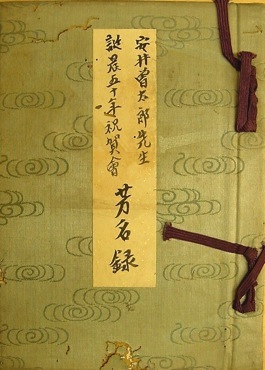 安井曽太郎先生
誕辰五十年祝賀會
芳名録